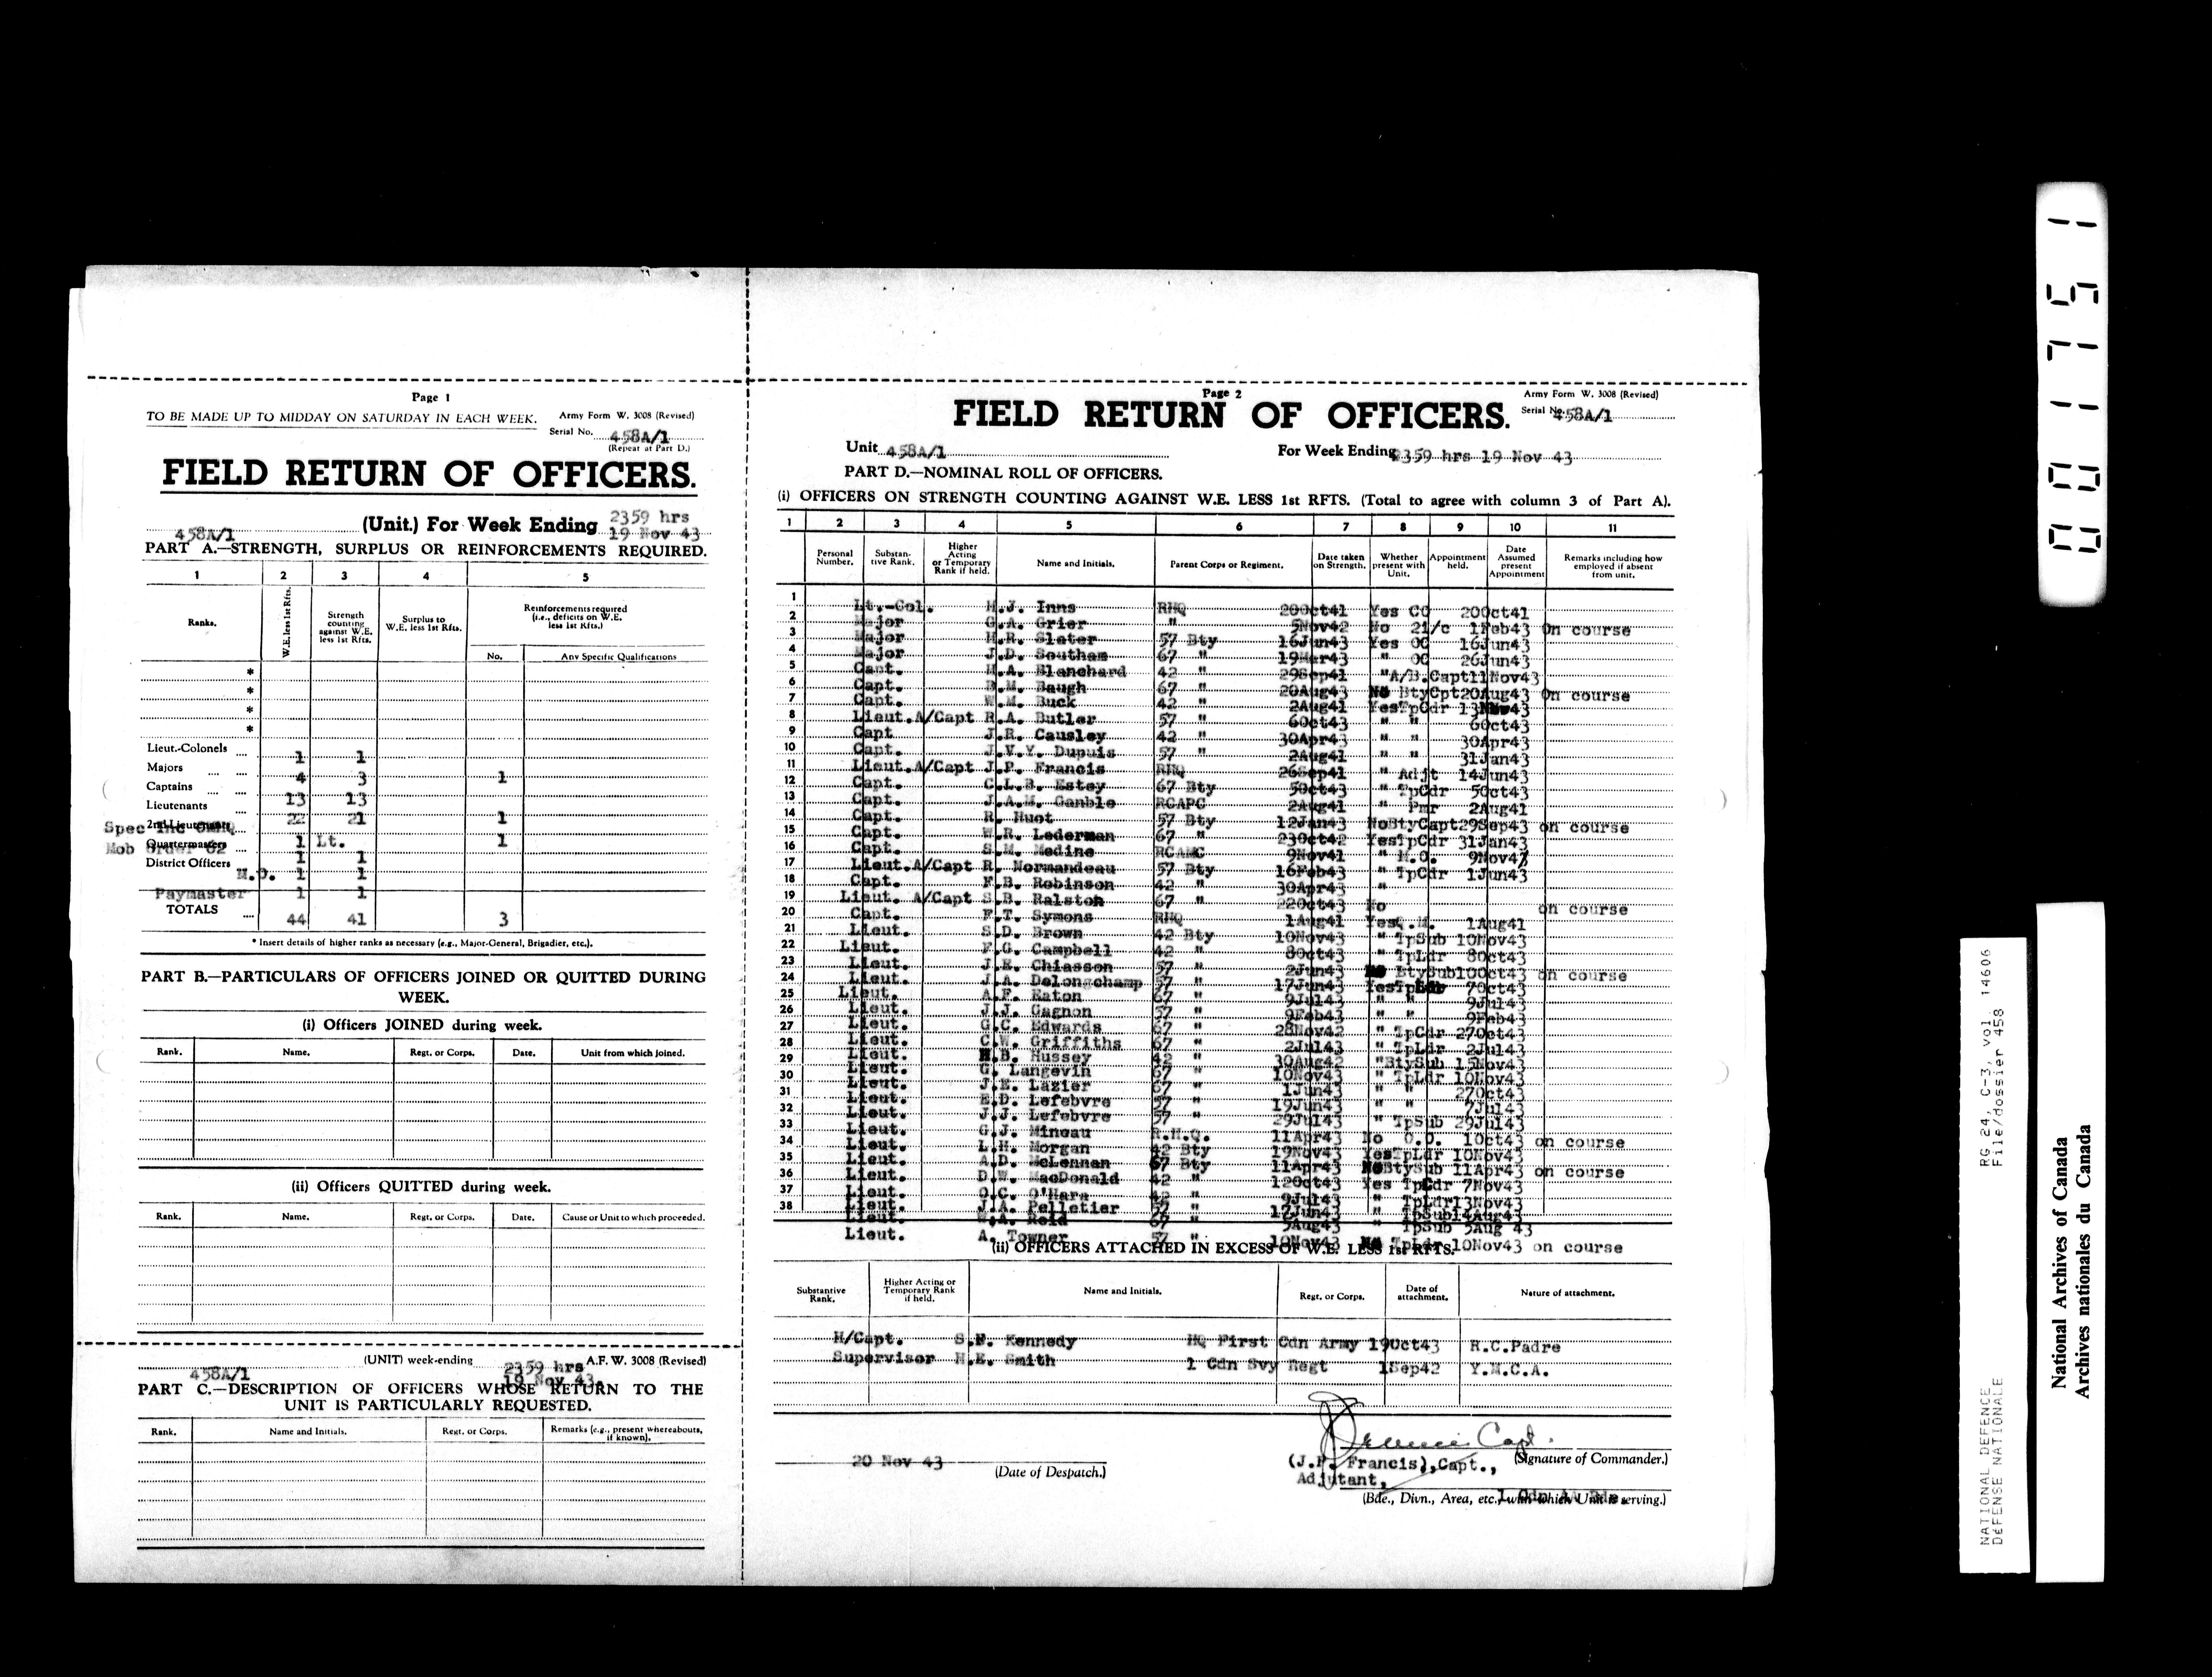 Page 1
TO BE MADE UP TO MIDDAY ON SATURDAY IN EACH WEEK.
Army Form W. 3008 (Revised)
Serial No. 458A/1
(Repeat at Part D.)
FIELD RETURN OF OFFICERS.
458A/1 (Unit.) For Week Ending 2359 hrs 19 Nov 43
PART A.—STRENGTH, SURPLUS OR REINFORCEMENTS REQUIRED.
1 2 3 4 5
Ranks. W.E. less 1st Rfts. Strength counting against W.E. less 1st Rfts. Surplus to W.E. less 1st Rfts. Reinforcements required (i.e., deficits on W.E. less 1st Rfts.)
No. Any Specific Qualifications
*
*
*
*
Lieut.-Colonels 1 1
Majors 4 3 1
Captains 13 13
Lieutenants 22 21 1
2nd Lieutenants
Spec Inc CMHQ
Mob Order 62 1 Lt. 1
Quartermasters 1 1
District Officers
M.O. 1 1
Paymaster 1 1
TOTALS 44 41 3
* Insert details of higher ranks as necessary (e.g., Major-General, Brigadier, etc.).
PART B.—PARTICULARS OF OFFICERS JOINED OR QUITTED DURING WEEK.
(i) Officers JOINED during week.
Rank. Name. Regt. or Corps. Date. Unit from which joined.
(ii) Officers QUITTED during week.
Rank. Name. Regt. or Corps. Date. Cause or Unit to which proceeded.
458A/1 (UNIT) week-ending 2359 hrs 19 Nov 43. A.F. W. 3008 (Revised)
PART C.—DESCRIPTION OF OFFICERS WHOSE RETURN TO THE UNIT IS PARTICULARLY REQUESTED.
Rank. Name and Initials. Regt. or Corps. Remarks (e.g., present whereabouts, if known).
Page 2
Army Form W. 3008 (Revised)
FIELD RETURN OF OFFICERS.
Serial No. 458A/1
Unit 458A/1 For Week Ending 2359 hrs 19 Nov 43
PART D.—NOMINAL ROLL OF OFFICERS.
(i) OFFICERS ON STRENGTH COUNTING AGAINST W.E. LESS 1st RFTS. (Total to agree with column 3 of Part A).
1 2 3 4 5 6 7 8 9 10 11
Personal Number. Substantive Rank. Higher Acting or Temporary Rank if held. Name and Initials. Parent Corps or Regiment. Date taken on Strength. Whether present with Unit. Appointment held. Date Assumed present Appointment Remarks including how employed if absent from unit.
1 Lt.-Col. H.J. Inns RHQ 20Oct41 Yes CO 20Oct41
2 Major G.A. Grier " 5Nov42 No 2i/c 1Feb43 On course
3 Major H.R. Slater 57 Bty 16Jun43 Yes OC 16Jun43
4 Major J.D. Southam 67 " 19Mar43 " OC 26Jun43
5 Capt. H.A. Blanchard 42 " 29Sep41 "A/B.Capt11Nov43
6 Capt. B.M. Baugh 67 " 20Aug43 No BtyCpt20Aug43 On course
7 Capt. W.M. Buck 42 " 2Aug41 YesTpCdr
8 Lieut.A/Capt R.A. Butler 57 " 6Oct43 " " 6Oct43
9 Capt J.R. Causley 42 " 30Apr43 " " 30Apr43
10 Capt. J.V.Y. Dupuis 57 " 2Aug41 " " 31Jan43
11 Lieut.A/Capt J.P. Francis RHQ 26Sep41 " Adjt 14Jun43
12 Capt. C.L.B. Estey 67 Bty 5Oct43 " TpCdr 5Oct43
13 Capt. J.A.M. Gamble RCAPC 2Aug41 " Pmr 2Aug41
14 Capt. R. Huot 57 Bty 12Jan43 NoBtyCapt29Sep43 on course
15 Capt. W.R. Lederman 67 " 23Oct42 YesTpCdr 31Jan43
16 Capt. S.M. Medine RCAMC 9Nov41 " M.O.
17 Lieut.A/Capt R. Normandeau 57 Bty 16Feb43 " TpCdr 1Jun43
18 Capt. F.B. Robinson 42 " 30Apr43 "
19 Lieut. A/Capt S.B. Ralston 67 " 22Oct43 No on course
20 Capt. F.T. Symons RHQ 1Aug41 YesQ.M. 1Aug41
21 Lieut. S.D. Brown 42 Bty 10Nov43 " TpSub 10Nov43
22 Lieut. F.G. Campbell 42 " 8Oct43 " TpLdr 8Oct43
23 Lieut. J.E. Chiasson 57 " 2Jun43 BtySub10Oct43 on course
24 Lieut. J.A. Delongchamp 57 " 17Jun43 7Oct43
25 Lieut. A.F. Eaton 67 " 9Jul43 " " 9Jul43
26 Lieut. J.J. Gagnon 57 " 9Feb43 " " 9Feb43
27 Lieut. G.C. Edwards 67 " 28Nov42 " TpCdr 27Oct43
28 Lieut. C.W. Griffiths 67 " 2Jul43 " TpLdr 2Jul43
29 Lieut. H.B. Hussey 42 " 30Aug42 "BtySub 15Nov43
30 Lieut. G. Langevin 67 " 10Nov43 " TpLdr 10Nov43
31 Lieut. J.E. Lazier 67 " 1Jun43 " " 27Oct43
32 Lieut. E.D. Lefebvre 57 " 19Jun43 " " 7Jul43
33 Lieut. J.J. Lefebvre 57 " 29Jul43 " TpSub 29Jul43
34 Lieut. G.J. Mineau R.H.Q. 11Apr43 No O.O. 1Oct43 on course
35 Lieut. L.H. Morgan 42 Bty 19Nov43 YesTpLdr 10Nov43
36 Lieut. A.D. McLennan 67 Bty 11Apr43 BtySub 11Apr43 on course
37 Lieut. D.W. MacDonald 42 " 12Oct43 Yes TpCdr 7Nov43
38 Lieut. O.C. O'Hara 42 " 9Jul43 " TpLdr13Nov43
Lieut. J.A. Pelletier 57 " 17Jun43 " TpSub14Aug43
Lieut. W.A. Reid 67 " 5Aug43 " TpSub 5Aug 43
Lieut. A. Towner 57 " 10Nov43 TpLdr 10Nov43 on course
(ii) OFFICERS ATTACHED IN EXCESS OF W.E. LESS 1st RFTS.
Substantive Rank. Higher Acting or Temporary Rank if held. Name and Initials. Regt. or Corps. Date of attachment. Nature of attachment.
H/Capt. S.F. Kennedy HQ First Cdn Army 19Oct43 R.C.Padre
Supervisor H.E. Smith 1 Cdn Svy Regt 1Sep42 Y.M.C.A.
20 Nov 43
(Date of Despatch.)
Capt.
(J.P. Francis),Capt., (Signature of Commander.)
Adjutant,
(Bde., Divn., Area, etc., with which Unit is serving.)
001751
RG 24, C-3, vol. 14606
File/dossier 458
NATIONAL DEFENCE
DÉFENSE NATIONALE
National Archives of Canada
Archives nationales du Canada